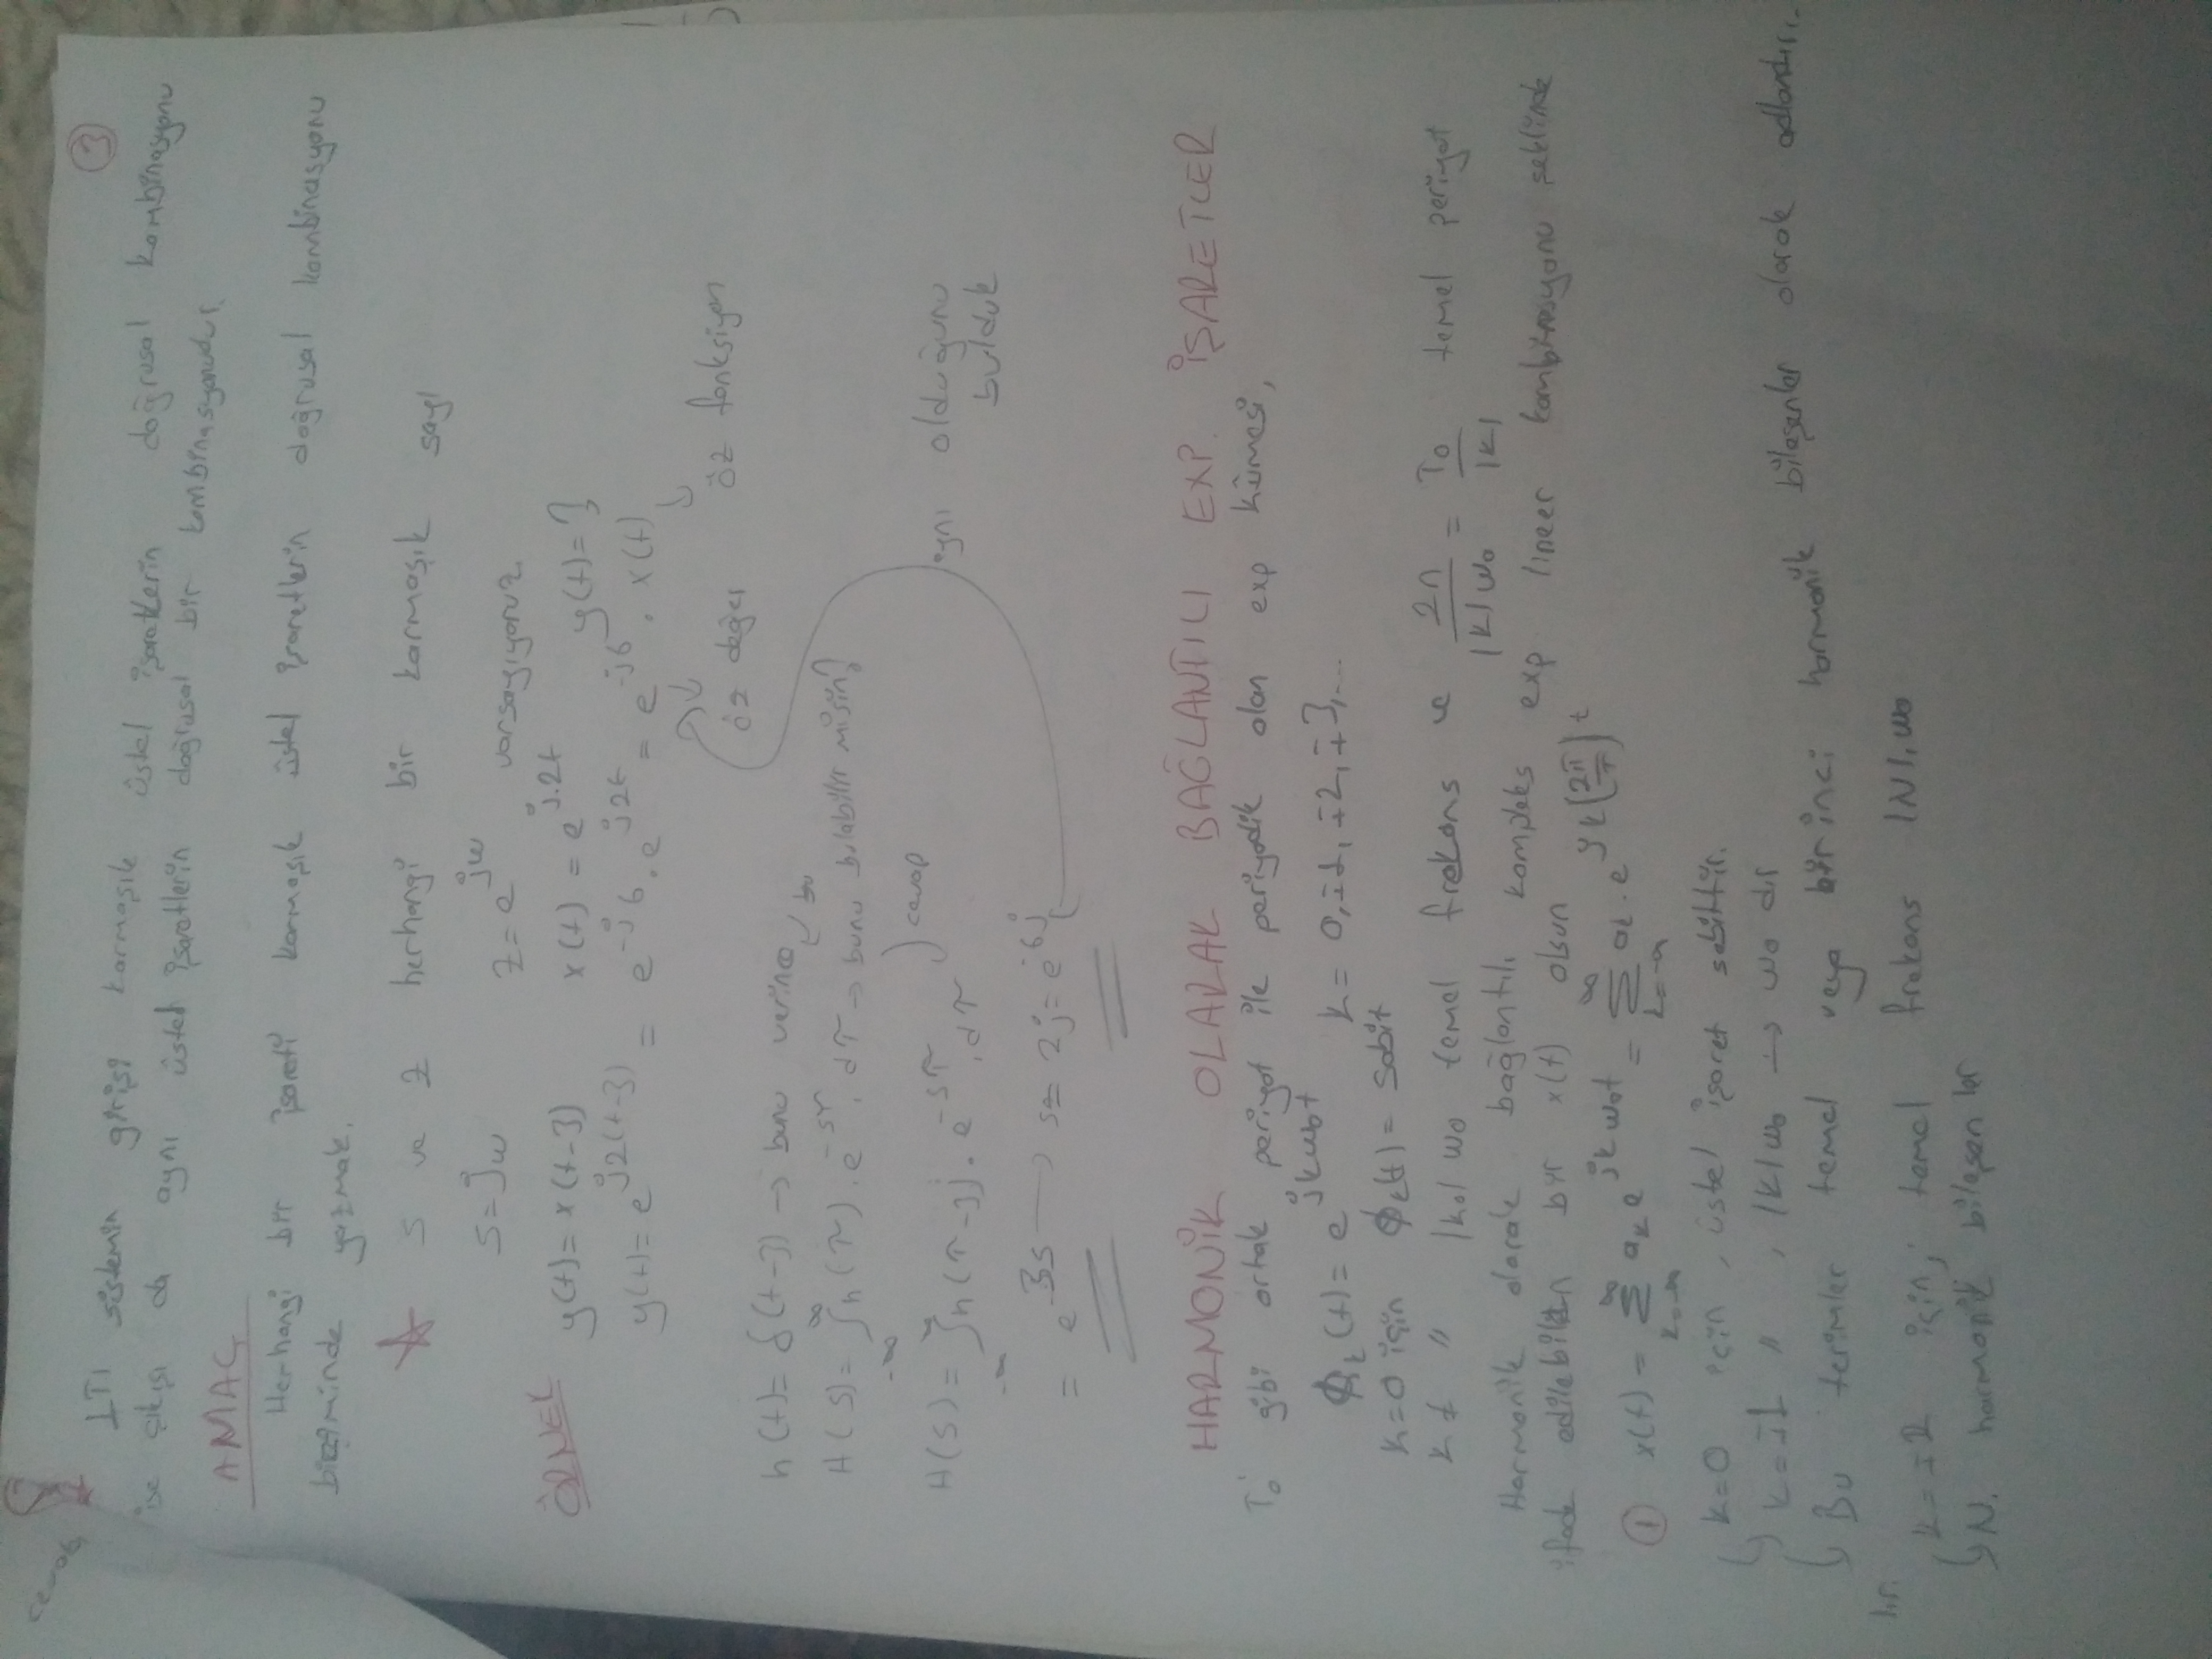 cevap
③
LTI sistemin girişi karmaşık üstel işaretlerin doğrusal kombinasyonu
ise çıkışı da aynı üstel işaretlerin doğrusal bir kombinasyonudur.
AMAÇ
Herhangi bir işareti karmaşık üstel işaretlerin doğrusal kombinasyonu
biçiminde yazmak.
☆ s ve z herhangi bir karmaşık sayı
s=jw z=e^{jw} varsayıyoruz.
ÖRNEK y(t)=x(t-3) x(t)=e^{j.2t} y(t)=?
y(t)=e^{j2(t-3)} = e^{-j6}.e^{j2t} = e^{-j6}.x(t)
öz değer öz fonksiyon
h(t)=δ(t-3) → bunu verince bu
H(s)=∫_{-∞}^{∞} h(τ).e^{-sτ}.dτ → bunu bulabilir misin?
H(s)=∫_{-∞}^{∞} h(τ-3).e^{-sτ}.dτ ) cevap
aynı olduğunu
bulduk
= e^{-3s} → s=2j=e^{-6j}
HARMONİK OLARAK BAĞLANTILI EXP. İŞARETLER
T₀ gibi ortak periyot ile periyodik olan exp kümesi,
ϕ_k(t)=e^{jkw₀t} k=0,∓1,∓2,∓3,...
k=0 için ϕ_k(t)=sabit
k≠ " |k₀|w₀ temel frekans ve 2π/|k|w₀ = T₀/|k| temel periyot
Harmonik olarak bağlantılı kompleks exp lineer kombinasyonu şeklinde
ifade edilebilen bir x(t) olsun
① x(t)=∑_{k=-∞}^{∞} a_k e^{jkw₀t} = ∑_{k=-∞}^{∞} a_k.e^{jk(2π/T)t}
k=0 için, üstel işaret sabittir.
k=∓1 ", |k|w₀ → w₀ dır
Bu terimler temel veya birinci harmonik bileşenler olarak adlandırı-
lır.
k=∓ için; temel frekans |N|.w₀
N. harmonik bileşenler